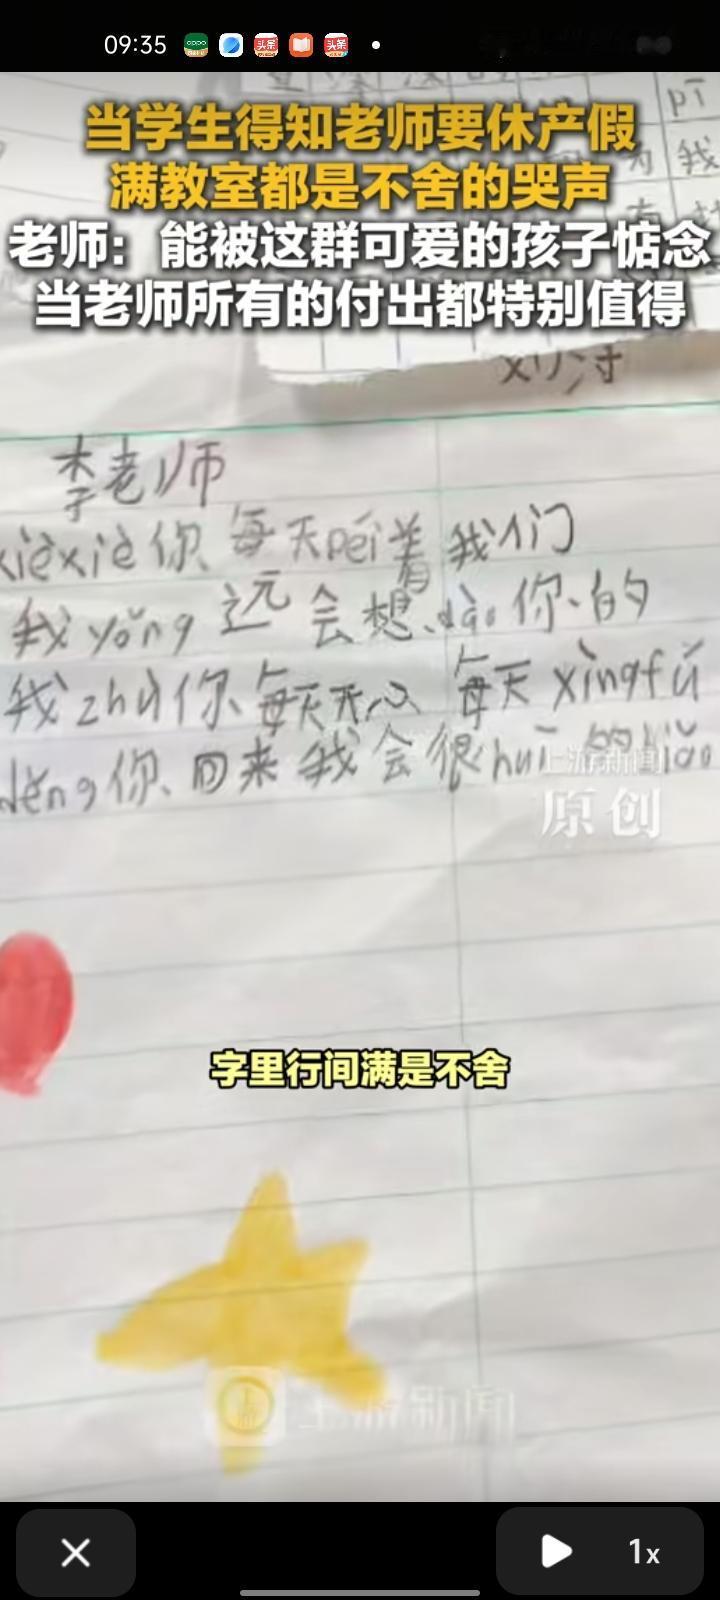 09:35
当学生得知老师要休产假
满教室都是不舍的哭声
老师：能被这群可爱的孩子惦念
当老师所有的付出都特别值得
pī
我
李老师
xièxiè你每天péi着我们
我yǒng远会想dào你的
我zhù你每天天心每天xìngfú
děng你回来我会很huī的
上游新闻
原创
字里行间满是不舍
上游新闻
1x